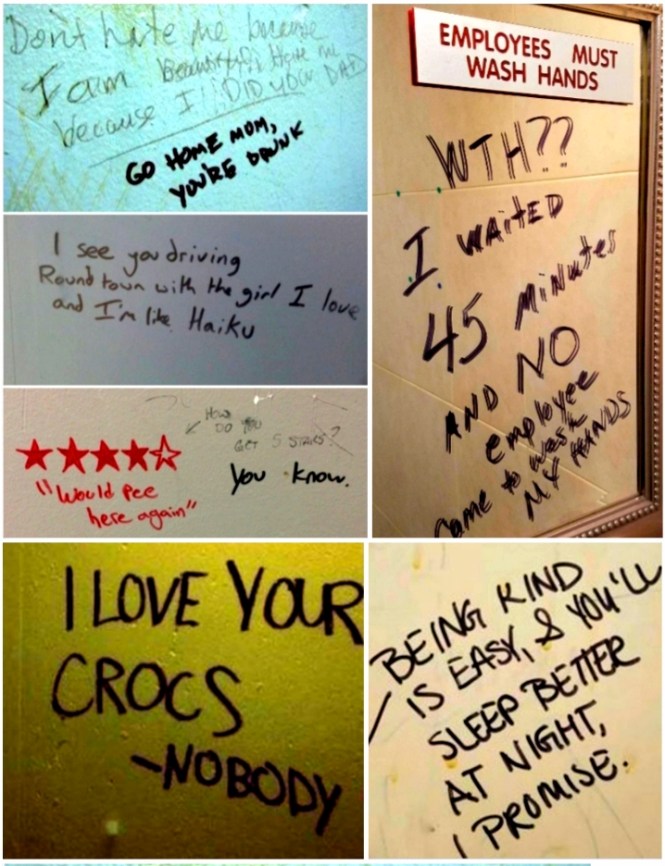 Don't hate me because
I am Beautiful, Hate me
because I DID your DAD
GO HOME MOM,
YOU'RE DRUNK
I see you driving
Round town with the girl I love
and I'm like Haiku
HOW
DO YOU
GET 5 STARS?
You Know.
"Would Pee
here again"
EMPLOYEES MUST
WASH HANDS
WTH??
I WAITED
45 MiNutes
AND NO
employee
Came to wash
MY HANDS
I LOVE YOUR
CROCS
-NOBODY
BEING KIND
IS EASY, & YOU'LL
SLEEP BETTER
AT NIGHT,
I PROMISE.